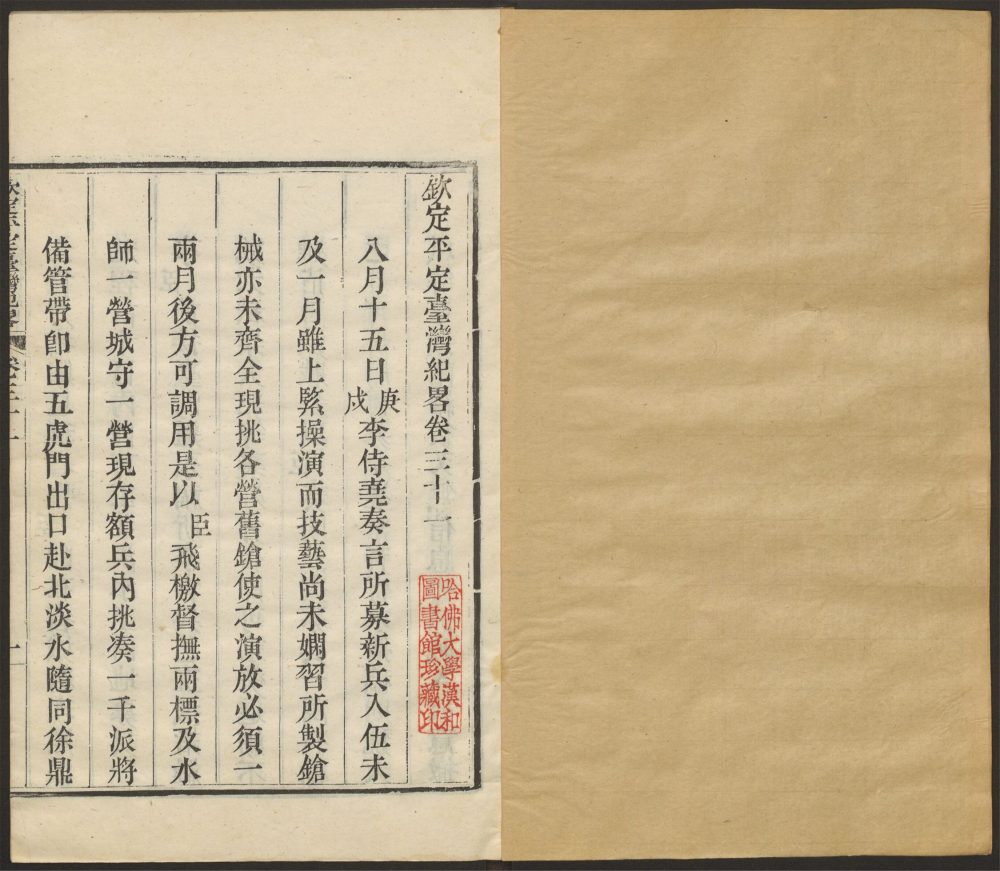 欽定平定臺灣紀畧卷三十一
八月十五日庚戌李侍堯奏言所募新兵入伍未
及一月雖上緊操演而技藝尚未嫻習所製鎗
械亦未齊全現挑各營舊鎗使之演放必須一
兩月後方可調用是以臣飛檄督撫兩標及水
師一營城守一營現存額兵內挑湊一千派將
備管帶卽由五虎門出口赴北淡水隨同徐鼎
哈佛大學漢和
圖書館珍藏印